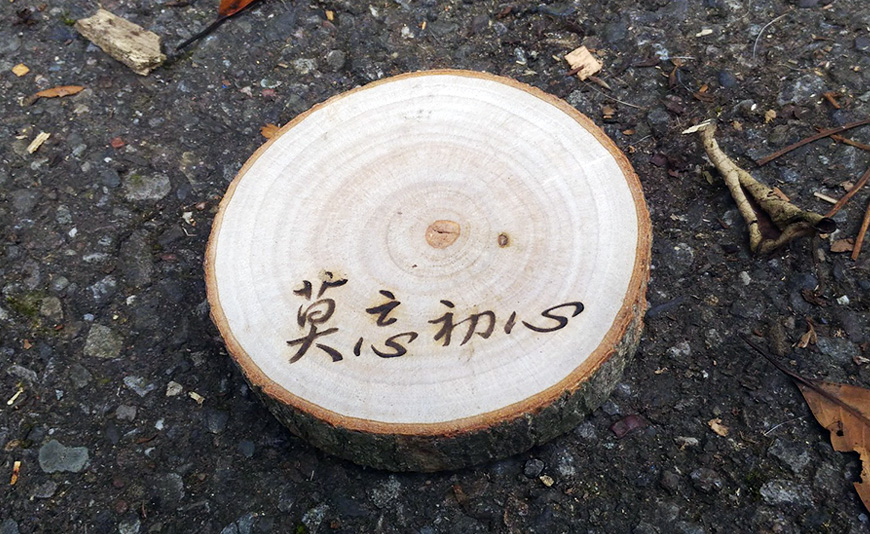 莫忘初心